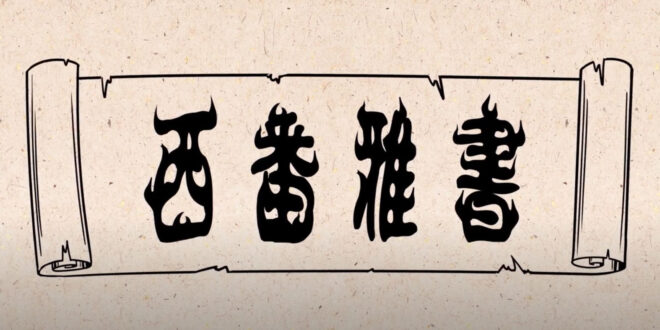 西番雅書